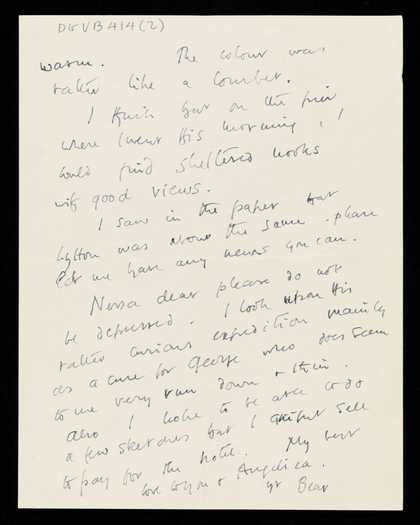 DGVB414(2)
warm. The colour was
rather like a Courbet.
I think but on the pier
where I went this morning, I
could find sheltered nooks
with good views.
I saw in the paper that
Lytton was about the same. please
let me have any news you can.
Nessa dear please do not
be depressed. I look upon this
rather curious expedition mainly
as a cure for George who does seem
to me very run down & thin.
also I hope to be able to do
a few sketches but I must sell
to pay for the hotel. My best
love to you & Angelica.
yr Bear